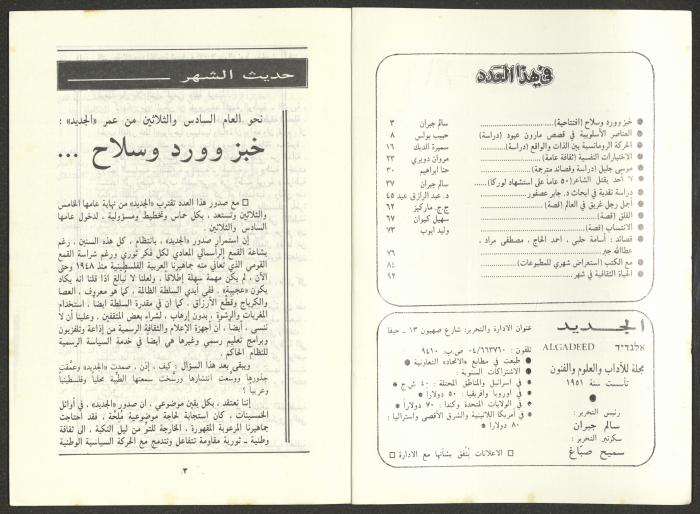 في هذا العدد
● خبز وورد وسلاح (افتتاحية) سالم جبران ٣
● العناصر الأسلوبية في قصص مارون عبود (دراسة) حبيب بولس ٨
● الحركة الرومانسية بين الذات والواقع (دراسة) سميرة الديك ١٦
● الاختبارات النفسية (ثقافة عامة) مروان دويري ٢٣
● موسى جليل (دراسة وقصائد مترجمة) حنا ابراهيم ٣٠
● لا أحد يقتل الشاعر (٥٠ عاما على استشهاد لوركا) سالم جبران ٣٧
● دراسة نقدية في ابحاث د. جابر عصفور د. عبد الرازق عيد ٤٥
● أجمل رجل غريق في العالم (قصة) ج.ج. ماركيز ٦٢
● القلق (قصة) سهيل كيوان ٦٧
● الانتساب (قصة) وليد ايوب ٧٣
● قصائد : أسامة حلبي ، احمد الحاج ، مصطفى مراد ،
عطاالله جبر ٧٦
● مع الكتب (استعراض شهري للمطبوعات) ٨٤
● الحياة الثقافية في شهر ٩٢
الجديد
אלגדיד ALGADEED
مجلة للآداب والعلوم والفنون
تأسست سنة ١٩٥١
رئيس التحرير :
سالم جبران
سكرتير التحرير :
سميح صبّاغ
عنوان الادارة والتحرير: شارع صهيون ١٣ - حيفا
تلفون : ٠٤/٦٦٣٧٦٠ ص.ب: ٩٤١٠
● طبعت في مطابع «الاتحاد» التعاونية
● الاشتراكات السنوية :
● في اسرائيل والمناطق المحتلة : ٤٠ ش ج
● في اوروبا وافريقيا : ٥٠ دولارا
● في الولايات المتحدة وكندا : ٧٠ دولارا
● في أمريكا اللاتينية والشرق الأقصى واستراليا :
٨٠ دولارا
□ الاعلانات يُتَّفق بشأنها مع الادارة □
حديث الشهر
نحو العام السادس والثلاثين من عمر «الجديد» :
خبز وورد وسلاح ...
□ مع صدور هذا العدد تقترب «الجديد» من نهاية عامها الخامس
والثلاثين وتستعد ، بكل حماس وتخطيط ومسؤولية ، لدخول عامها
السادس والثلاثين
إن استمرار صدور «الجديد» ، بانتظام ، كل هذه السنين ، رغم
بشاعة القمع الرأسمالي المعادي لكل فكر ثوري ورغم شراسة القمع
القومي الذي تعاني منه جماهيرنا العربية الفلسطينية منذ ١٩٤٨ وحتى
الآن ، لم يكن مهمة سهلة إطلاقا ، ولعلنا لا نبالغ اذا قلنا انه يكاد
يكون «عجيبة» . ففي أيدي السلطة الظالمة ، كما هو معروف ، العصا
والكرباج وقطع الأرزاق ، كما ان في مقدرة السلطة ايضا ، استخدام
المغريات والرشوة ، بدون إرهاب ، لشراء بعض المثقفين . وعلينا أن لا
ننسى ، أيضا ، أن أجهزة الإعلام والثقافة الرسمية من إذاعة وتلفزيون
وبرامج تعليم رسمي وغيرها هي ايضا في خدمة السياسة الرسمية
للنظام الحاكم .
ويبقى بعد هذا السؤال : كيف ، إذن ، صمدت «الجديد» وعمَّقت
جذورها ووسعت انتشارها ورسَّخت سمعتها الطيِّبة محليا وفلسطينيا
وعربيا ؟
إننا نعتقد ، بكل يقين موضوعي ، ان صدور «الجديد» ، في أوائل
الخمسينات ، كان استجابة لحاجة موضوعية مُلِحَّة ، فقد احتاجت
جماهيرنا المرعوبة المقهورة ، الخارجة للتو من ليل النكبة ، الى ثقافة
وطنية - ثورية مقاومة تتفاعل وتندمج مع الحركة السياسية الوطنية
٣